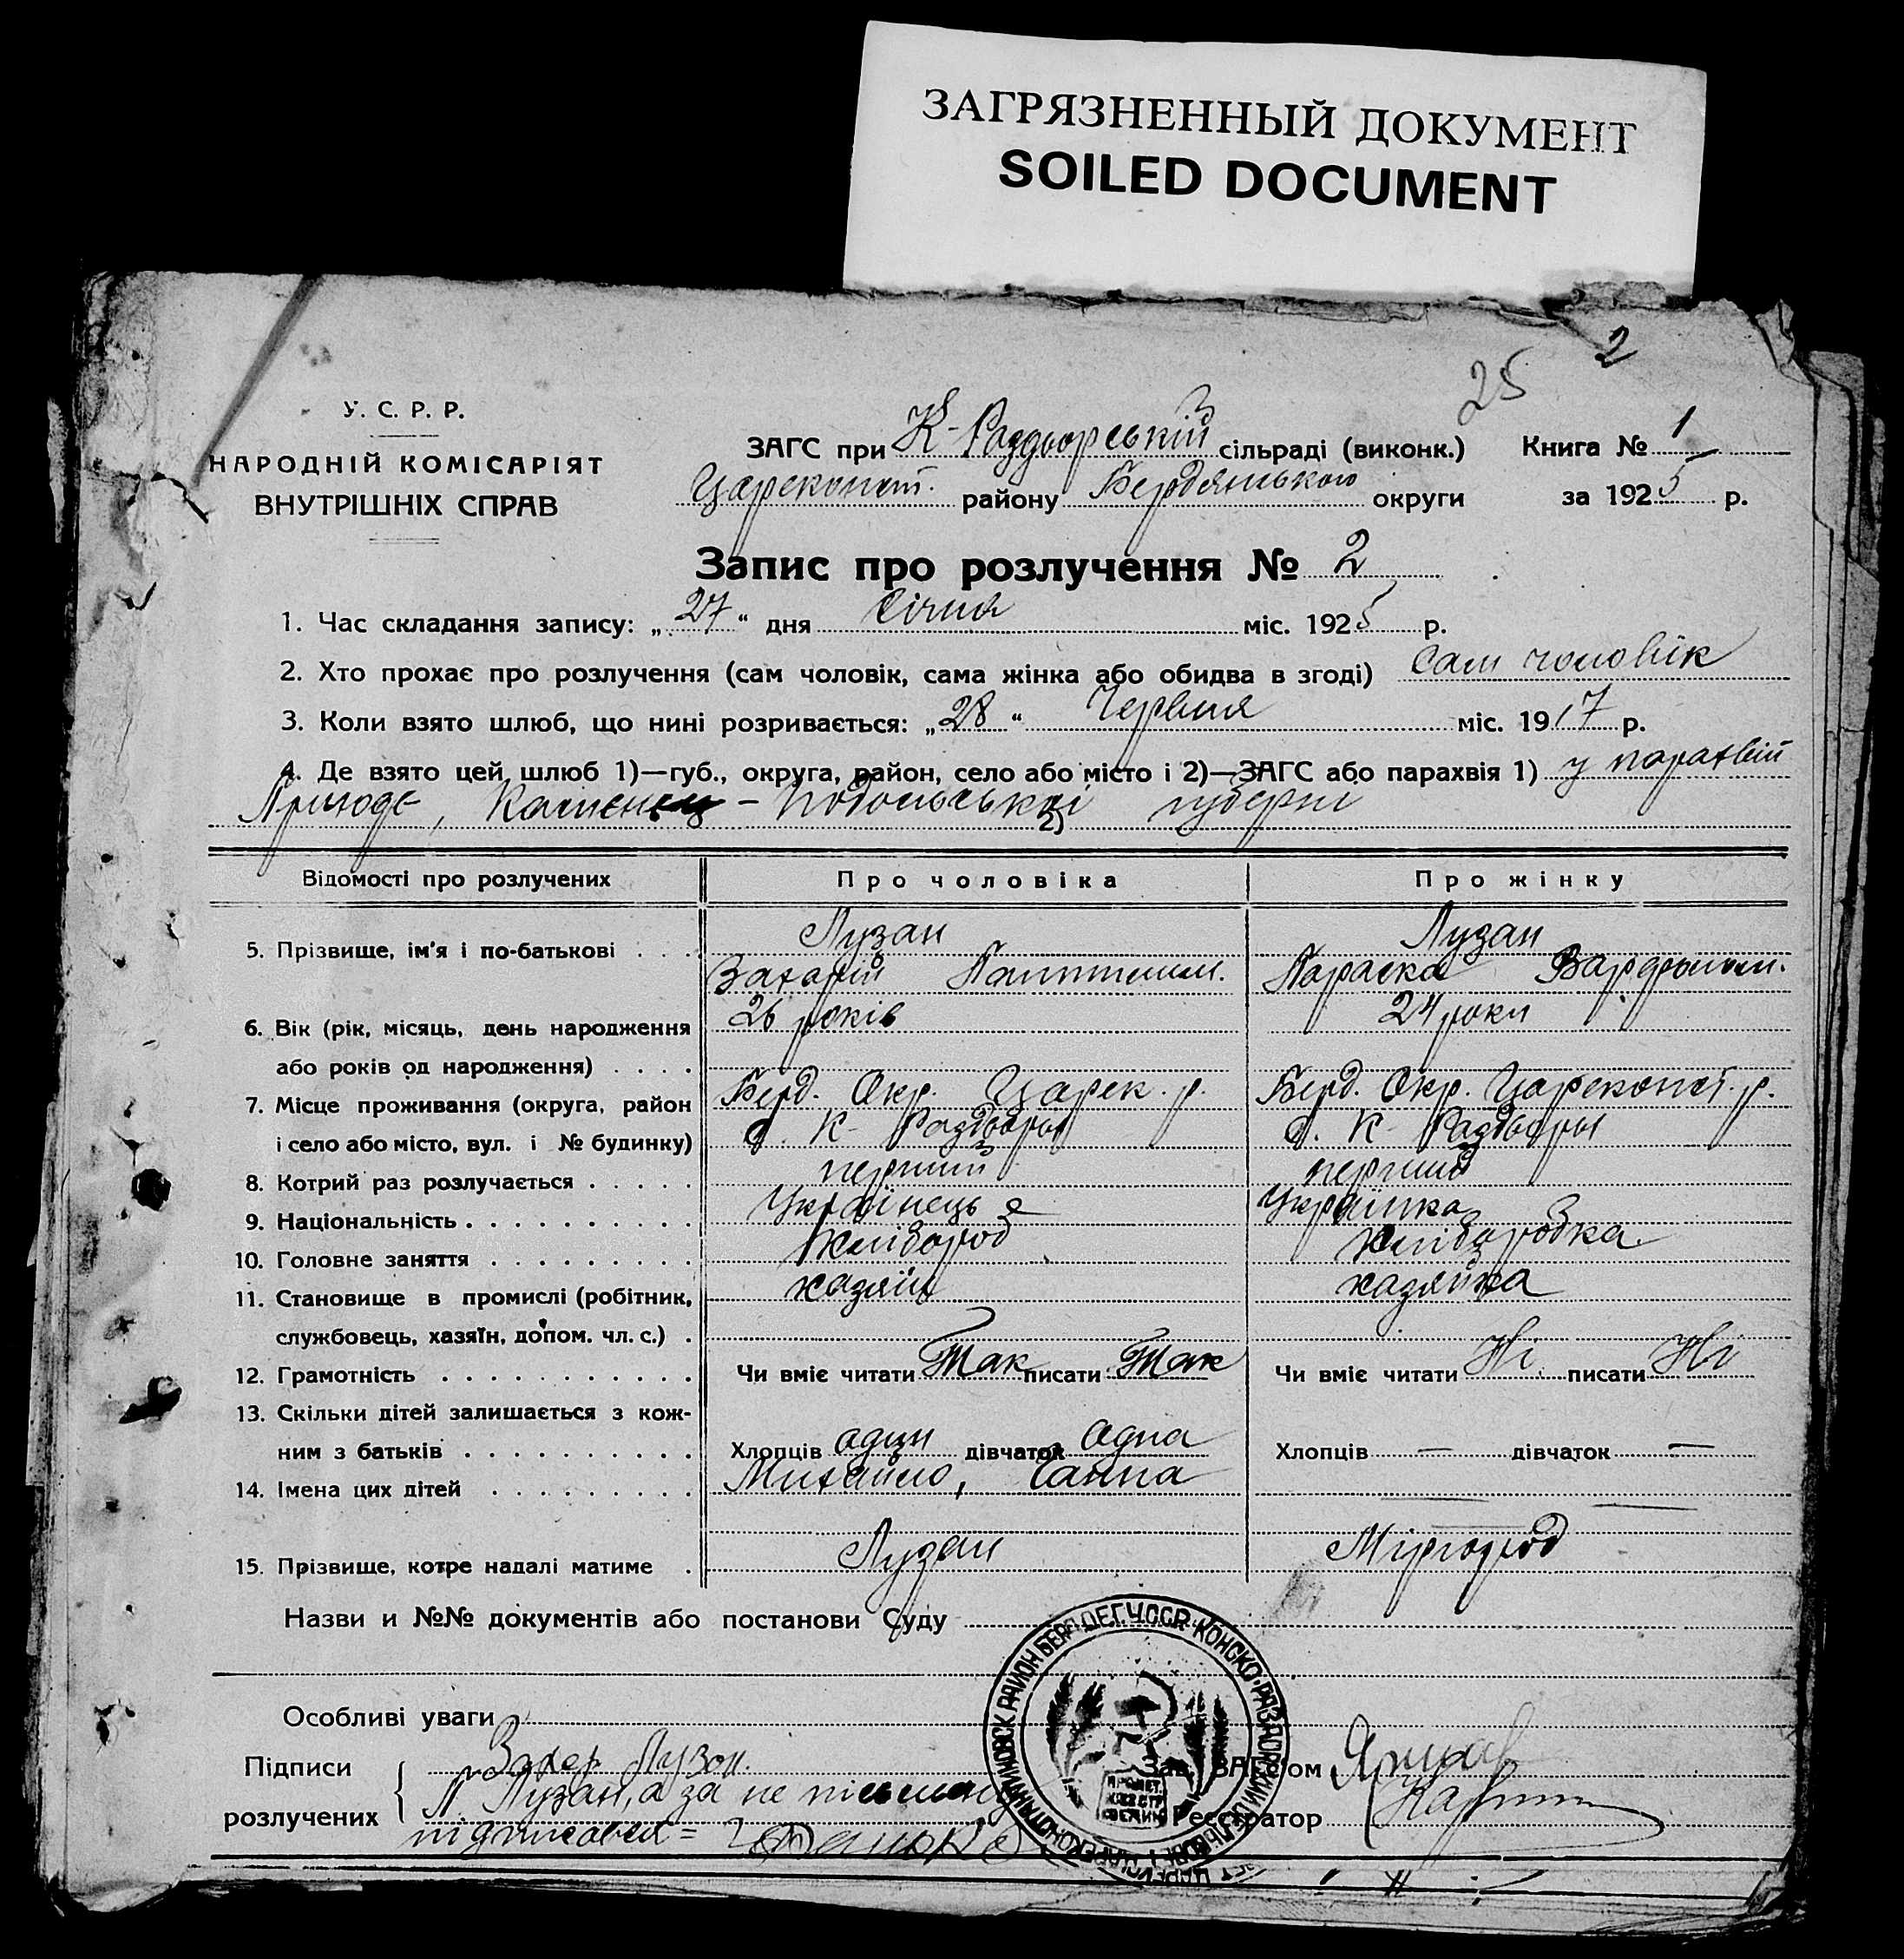 ЗАГРЯЗНЕННЫЙ ДОКУМЕНТ
SOILED DOCUMENT
2
25
У. С. Р. Р.
НАРОДНІЙ КОМІСАРІЯТ
ВНУТРІШНІХ СПРАВ
ЗАГС при К-Роздьорській сільраді (виконк.) Книга № 1
Цареконст. району Бердянського округи за 1925 р.
Запис про розлучення № 2
1. Час складання запису: „27“ дня Січня міс. 1925 р.
2. Хто прохає про розлучення (сам чоловік, сама жінка або обидва в згоді) Сам чоловік
3. Коли взято шлюб, що нині розривається: „28“ Червня міс. 1917 р.
4. Де взято цей шлюб 1)—губ., округа, район, село або місто і 2)—ЗАГС або парахвія 1) у парахвій
Каменец-Подольської 2) губерні
Відомості про розлучених Про чоловіка Про жінку
5. Прізвище, ім'я і по-батькові . . . Лузан Лузан
Захарій Параска
6. Вік (рік, місяць, день народження 26 років 24 роки
або років од народження) . . . .
7. Місце проживання (округа, район Берд. Окр. Царек. р. Берд. Окр. Цареконст. р.
і село або місто, вул. і № будинку) с. К- Раздьоры с. К- Раздьоры
8. Котрий раз розлучається . . . . . перший перший
9. Національність . . . . . . . . . . Українець Українка
10. Головне заняття . . . . . . . . . хлібороб хліборобка
11. Становище в промислі (робітник, хазяїн хазяйка
службовець, хазяїн, допом. чл. с.) .
12. Грамотність . . . . . . . . . . . Чи вміє читати Так писати Так Чи вміє читати Ні писати Ні
13. Скільки дітей залишається з кож-
ним з батьків . . . . . . . . . . Хлопців один дівчаток одна Хлопців — дівчаток —
14. Імена цих дітей . . . . . . . . . Михайло, Ганна
15. Прізвище, котре надалі матиме . Лузан Міргород
Назви и №№ документів або постанови Суду
Особливі уваги
Підписи Захар Лузон. Зав. ЗАГС'ом
розлучених П. Лузан, а за не письмену Реєстратор
підписався =